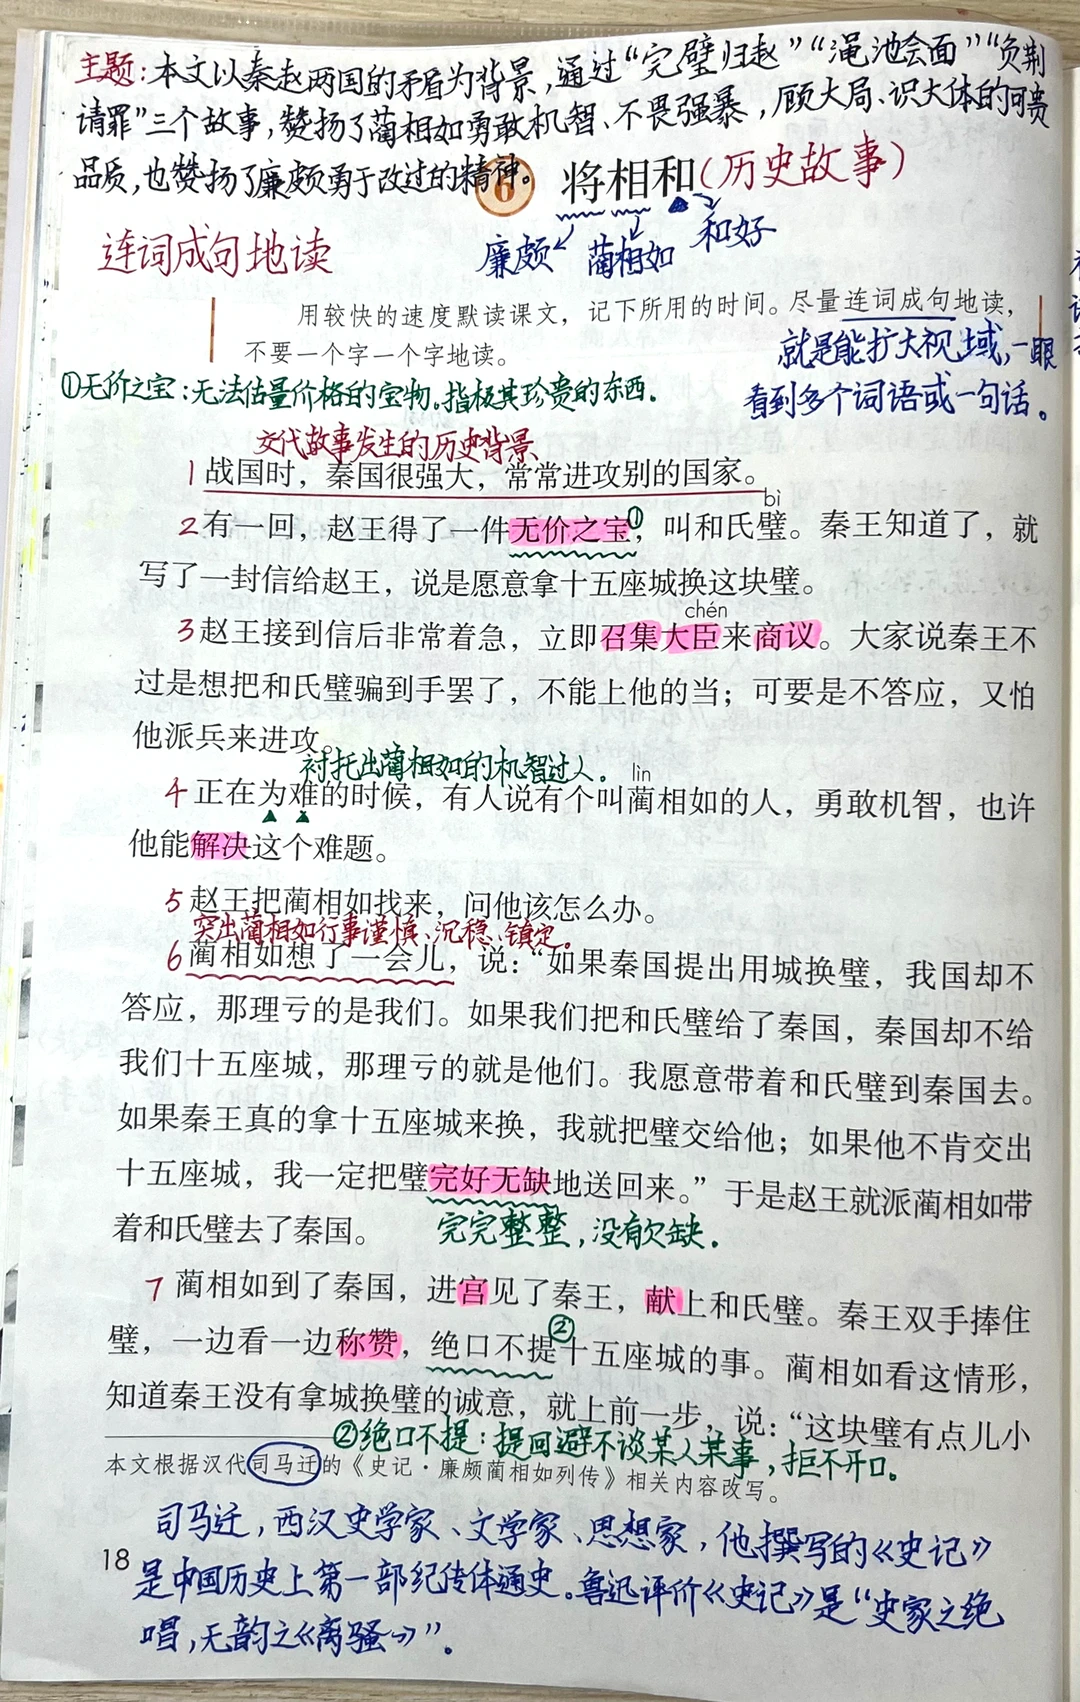 主题：本文以秦赵两国的矛盾为背景，通过“完璧归赵”“渑池会面”“负荆
请罪”三个故事，赞扬了蔺相如勇敢机智、不畏强暴，顾大局、识大体的可贵
品质，也赞扬了廉颇勇于改过的精神。
6 将相和（历史故事）
廉颇 蔺相如 和好
连词成句地读
用较快的速度默读课文，记下所用的时间。尽量连词成句地读，
不要一个字一个字地读。
就是能扩大视域，一眼
看到多个词语或一句话。
①无价之宝：无法估量价格的宝物。指极其珍贵的东西。
交代故事发生的历史背景
1 战国时，秦国很强大，常常进攻别的国家。
bì
2 有一回，赵王得了一件无价之宝①，叫和氏璧。秦王知道了，就
写了一封信给赵王，说是愿意拿十五座城换这块璧。
chén
3 赵王接到信后非常着急，立即召集大臣来商议。大家说秦王不
过是想把和氏璧骗到手罢了，不能上他的当；可要是不答应，又怕
他派兵来进攻。
衬托出蔺相如的机智过人。
lìn
4 正在为难的时候，有人说有个叫蔺相如的人，勇敢机智，也许
他能解决这个难题。
5 赵王把蔺相如找来，问他该怎么办。
突出蔺相如行事谨慎、沉稳、镇定。
6 蔺相如想了一会儿，说：“如果秦国提出用城换璧，我国却不
答应，那理亏的是我们。如果我们把和氏璧给了秦国，秦国却不给
我们十五座城，那理亏的就是他们。我愿意带着和氏璧到秦国去。
如果秦王真的拿十五座城来换，我就把璧交给他；如果他不肯交出
十五座城，我一定把璧完好无缺地送回来。”于是赵王就派蔺相如带
着和氏璧去了秦国。
完完整整，没有欠缺。
7 蔺相如到了秦国，进宫见了秦王，献上和氏璧。秦王双手捧住
璧，一边看一边称赞，绝口不提②十五座城的事。蔺相如看这情形，
知道秦王没有拿城换璧的诚意，就上前一步，说：“这块璧有点儿小
②绝口不提：提回避不谈某人某事，拒不开口。
本文根据汉代司马迁的《史记·廉颇蔺相如列传》相关内容改写。
司马迁，西汉史学家、文学家、思想家，他撰写的《史记》
18
是中国历史上第一部纪传体通史。鲁迅评价《史记》是“史家之绝
唱，无韵之《离骚》”。